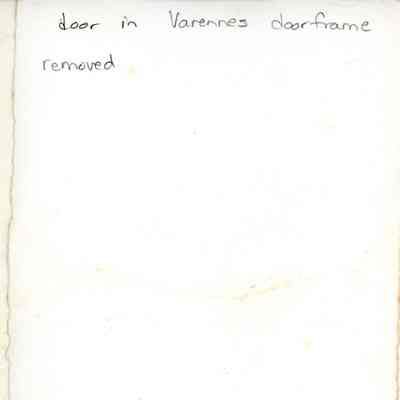 door in Varennes doorframe
removed